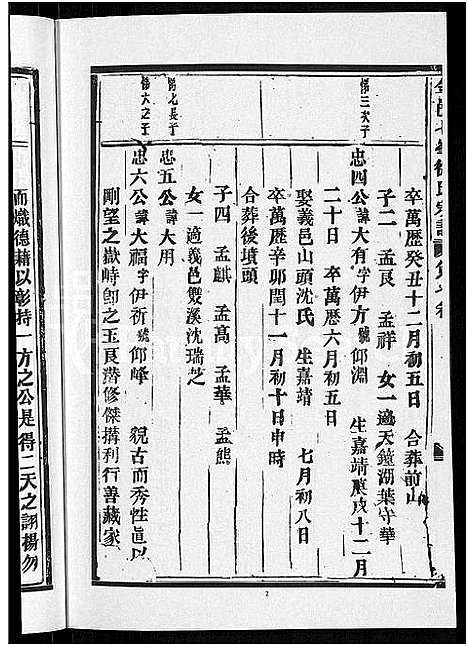 卒萬歷癸丑十二月初五日 合葬前山
子二 孟艮 孟祥 女一適天鐘湖葉守華
忠四公諱大有字伊方號仰淵 生嘉靖庚戌十二月
二十日 卒萬歷六月初五日
娶義邑山頭沈氏 生嘉靖 七月初八日
卒萬歷辛卯閏十一月初十日申時
合葬後墳頭
子四 孟麒 孟高 孟華 孟熊
女一適義邑雙溪沈瑞芝
忠五公諱大用
忠六公諱大福字伊祈號仰峰 貌古而秀性眞以
剛望之嶽峙卽之玉艮潛修傑搆利行善藏家
第三次子
第七長子
第六之子
而熾德藉以彰持一方之公是得二天之詡揚勿
2